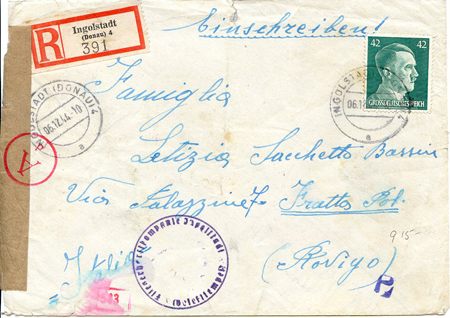 R
Ingolstadt
(Donau) 4
391
Einschreiben!
42 42
GROSSDEUTSCHES REICH
INGOLSTADT (DONAU) 4
06.12.44.-10
a
INGOLSTADT
06.12
a
A
Famiglia
Letizia Sacchetto Bassin
Via Palazzine 7 Fratta Pol.
(Rovigo)
Italia
915-